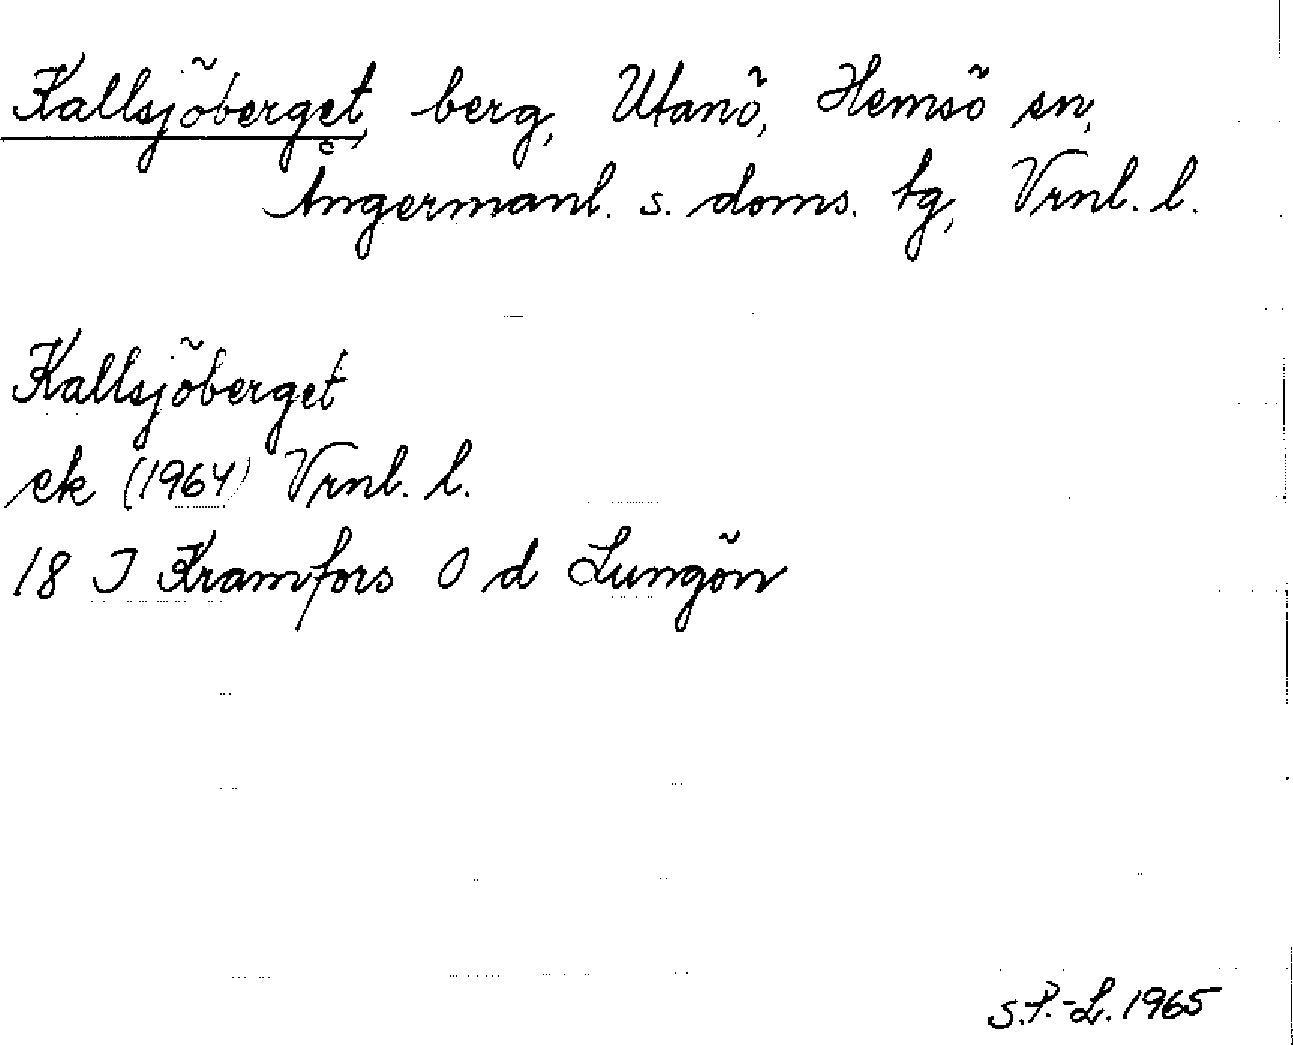 Kallsjöberget, berg, Utanö, Hemsö sn,
Ångermanl. s. doms. tg, Vrnl. l.
Kallsjöberget
ek (1964) Vrnl. l.
18 J Kramfors O d Lungön
S.P.-L. 1965